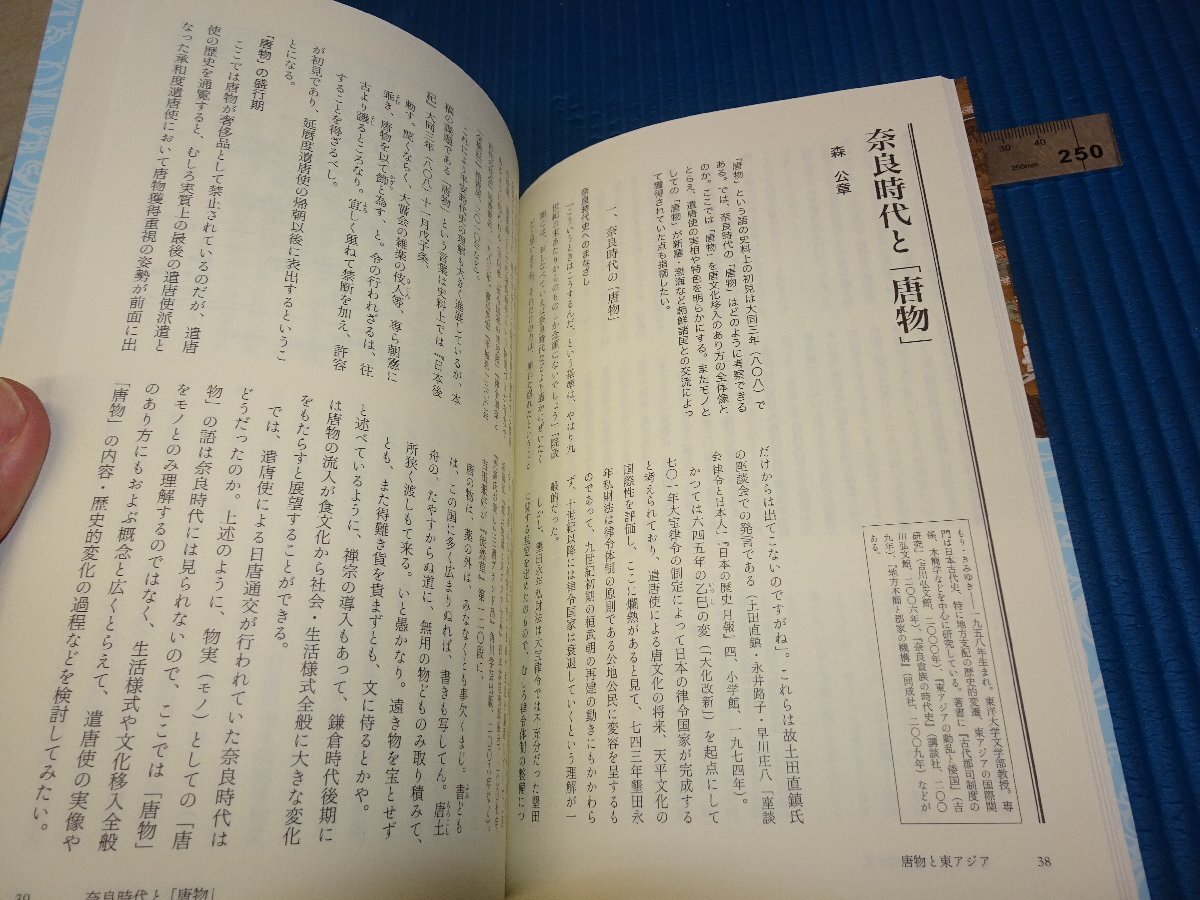 奈良時代と「唐物」
森 公章
「唐物」という語の史料上の初見は大同三年(八〇八)で
ある。では、奈良時代の「唐物」はどのように考察できる
のか。ここでは「唐物」を唐文化移入のあり方の全体像と
とらえ、遣唐使の実相や特色を明らかにする。またモノと
しての「唐物」が新羅・渤海など朝鮮諸国との交流によっ
て獲得されていた点も指摘したい。
もり・きみゆき――一九五八年生まれ。東洋大学文学部教授。専
門は日本古代史、特に地方支配の歴史的変遷、東アジアの国際関
係、木簡学などを中心に研究している。著書に『古代郡司制度の
研究』(吉川弘文館、二〇〇〇年)、『東アジアの動乱と倭国』(吉
川弘文館、二〇〇六年)、『奈良貴族の時代史』(講談社、二〇〇
九年)、『地方木簡と郡家の機構』(同成社、二〇〇九年)などが
ある。
一、奈良時代の「唐物」
奈良時代史へのまなざし
だけからは出てこないのですがね」。これらは故土田直鎮氏
の座談会での発言である(土田直鎮・永井路子・早川庄八「座談
会律令と日本人」『日本の歴史月報』四、小学館、一九七四年)。
かつては六四五年の乙巳の変(「大化改新」)を起点にして
七〇一年大宝律令の制定によって日本の律令国家が完成する
と考えられており、遣唐使による唐文化の将来、天平文化の
国際性を評価し、ここに爛熟があると見て、七四三年墾田永
年私財法は律令体制の原則である公地公民に変容を呈するも
のであって、九世紀初頭の桓武朝の再建の動きにもかかわら
ず、十世紀以降には律令国家は衰退していくという理解が一
般的だった。
しかし、墾田永年私財法は大宝律令では不充分だった墾田
唐物と東アジア
38
稿の課題である「唐物」という言葉は史料上では『日本後
紀』大同三年(八〇八)十一月戊子条、
勅す。聞くならく、大嘗会の雑楽の伎人等、専ら朝憲に
乖き、唐物を以て飾と為す、と。令の行われざるは、往
古より譏るところなり。宜しく重ねて禁断を加え、許容
することを得ざるべし。
が初見であり、延暦度遣唐使の帰朝以後に表出するというこ
とになる。
「唐物」の盛行期
ここでは唐物が奢侈品として禁止されているのだが、遣唐
使の歴史を通覧すると、むしろ実質上の最後の遣唐使派遣と
なった承和度遣唐使において唐物獲得重視の姿勢が前面に出
唐の物は、薬の外は、みななくとも事欠くまじ。書ども
は、この国に多く広まりぬれば、書きも写してん。唐土
舟の、たやすからぬ道に、無用の物どものみ取り積みて、
所狭く渡しもて来る。いと愚かなり。遠き物を宝とせず
とも、また得難き貨を貴まずとも、文に侍るとかや。
と述べているように、禅宗の導入もあって、鎌倉時代後期に
は唐物の流入が食文化から社会・生活様式全般に大きな変化
をもたらすと展望することができる。
では、遣唐使による日唐通交が行われていた奈良時代は
どうだったのか。上述のように、物実(モノ)としての「唐
物」の語は奈良時代には見られないので、ここでは「唐物」
をモノとのみ理解するのではなく、生活様式や文化移入全般
のあり方にもおよぶ概念と広くとらえて、遣唐使の実像や
「唐物」の内容・歴史的変化の過程などを検討してみたい。
39
奈良時代と「唐物」
30
40
250mm
250